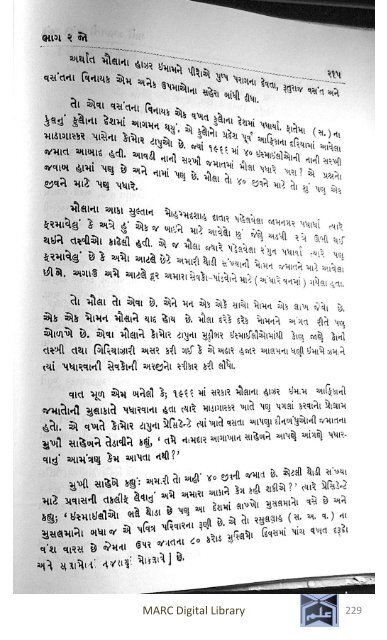 ભાગ ૨ જો
૨૧૫
અર્થાત મૌલાના હાઝર ઇમામને પીરોએ પુષ્પ પરાગના દેવતા, રૂતુરાજ વસંત અને
વસંતના વિનાયક એમ અનેક ઉપમાઓના સહેરા બાંધી દીધા.
તો એવા વસંતના વિનાયક એક વખત ફુલોના દેશમાં પધાર્યા. ફાતેમા (સ.) ના
ફુલનું ફુલોના દેશમાં આગમન થયું. એ ફુલોનો પ્રદેશ પૂર્વ આફ્રિકાના દરિયામાં આવેલા
માડાગાસ્કર પાસેના કોમોર ટાપુઓ છે. જ્યાં ૧૯૬૬માં ૪૦ ઇસ્માઇલીઓની નાની સરખી
જમાત આબાદ હતી. આવડી નાની સરખી જમાતમાં મૌલા પધારે ખરા? એ પ્રશ્નનો
જવાબ હામાં પણ છે અને નામાં પણ છે. મૌલા તો ૪૦ જીવને માટે તો શું પણ એક
જીવને માટે પણ પધારે.
મૌલાના આકા સુલ્તાન મોહમ્મદશાહ દાતાર પહેલવેલા જામનગર પધાર્યા ત્યારે
ફરમાવેલું કે અત્રે હું એક જ બાઇને માટે આવેલો છું જેણે અડધી રાત્રે ઉભી થઈ
થઇને તસ્બીઓ કાઢેલી હતી. એ જ મૌલા જ્યારે પહેલવેલા રંગુન પધાર્યા ત્યારે પણ
ફરમાવેલું છે કે અમો આટલે છેટે અમારી થોડી સંખ્યાની મોમન જમાતને માટે આવેલા
છીએ. અગાઉ અમે આટલે દૂર અમારા સેવકો-પાંડવોને માટે (અંધારે વનમાં) ગયેલા હતા.
તો મૌલા તો એવા છે. એને મન એક એક સાચો મોમન એક લાખ જેવો છે.
એક એક મોમન મૌલાને યાદ હોય છે. મૌલા દરેકે દરેક મોમનને અંગત રીતે પણ
ઓળખે છે. એવા મૌલાને કોમોર ટાપુના મુઠ્ઠીભર ઇસ્માઇલીઓમાંથી કોણ જાણે કોની
તસ્બી તથા ગિરિયાઝારી અસર કરી ગઈ કે એ અઢાર હજાર આલમના ધણી ઇમામે ઝમાને
ત્યાં પધારવાની સેવકોની અરજીનો સ્વીકાર કરી લીધો.
વાત મૂળ એમ બનેલી કે; ૧૯૬૬ માં સરકાર મૌલાના હાઝર ઇમામ આફ્રિકાની
જમાતોની મુલાકાતે પધારવાના હતા ત્યારે માડાગાસ્કર ખાતે પણ પગલાં કરવાનો પ્રોગ્રામ
હતો. એ વખતે કોમોર ટાપુના પ્રેસિડેન્ટે ત્યાં ખાતે વસતા આપણા દીનબંધુઓની જમાતના
મુખી સાહેબને તેડાવીને કહ્યું, ‘તમે નામદાર આગાખાન સાહેબને આપણે આંગણે પધાર-
વાનું આમંત્રણ કેમ આપતા નથી?’
મુખી સાહેબે કહ્યું: અમારી તો અહીં ૪૦ રૂહની જમાત છે. એટલી થોડી સંખ્યા
માટે પ્રવાસની તકલીફ લેવાનું અમે અમારા આકાને કેમ કહી શકીએ?’ ત્યારે પ્રેસિડેન્ટે
કહ્યું: ‘ઇસ્માઇલીઓ ભલે થોડા છે પણ આ દેશમાં લાખો મુસલમાનો વસે છે અને
મુસલમાનો બધા જ એ પવિત્ર પરિવારના રૂણી છે. એ તો રસુલલ્લાહ (સ. અ. વ.) ના
વંશ વારસ છે જેમના ઉપર જગતના ૮૦ કરોડ મુસ્લિમો દિવસમાં પાંચ વખત દરૂદો
અને સલામોનાં નજરાણાં મોકલાવે છે.
MARC Digital Library
229